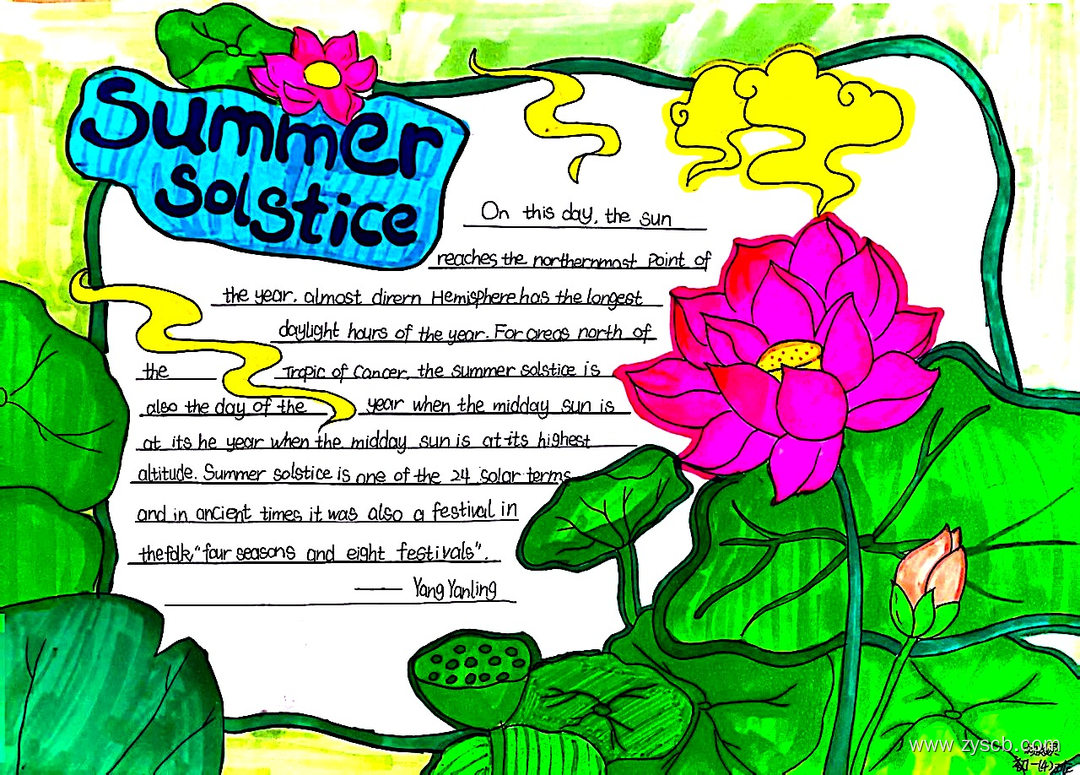 Summer
Solstice
On this day, the sun
reaches the northernmost point of
the year. almost dirern Hemisphere has the longest
daylight hours of the year. For areas north of
the Tropic of Cancer, the summer solstice is
also the day of the year when the midday sun is
at its he year when the midday sun is at its highest
altitude. Summer solstice is one of the 24 solar terms
and in ancient times it was also a festival in
the folk, "four seasons and eight festivals".
—— Yang Yanling
www.zyscb.com